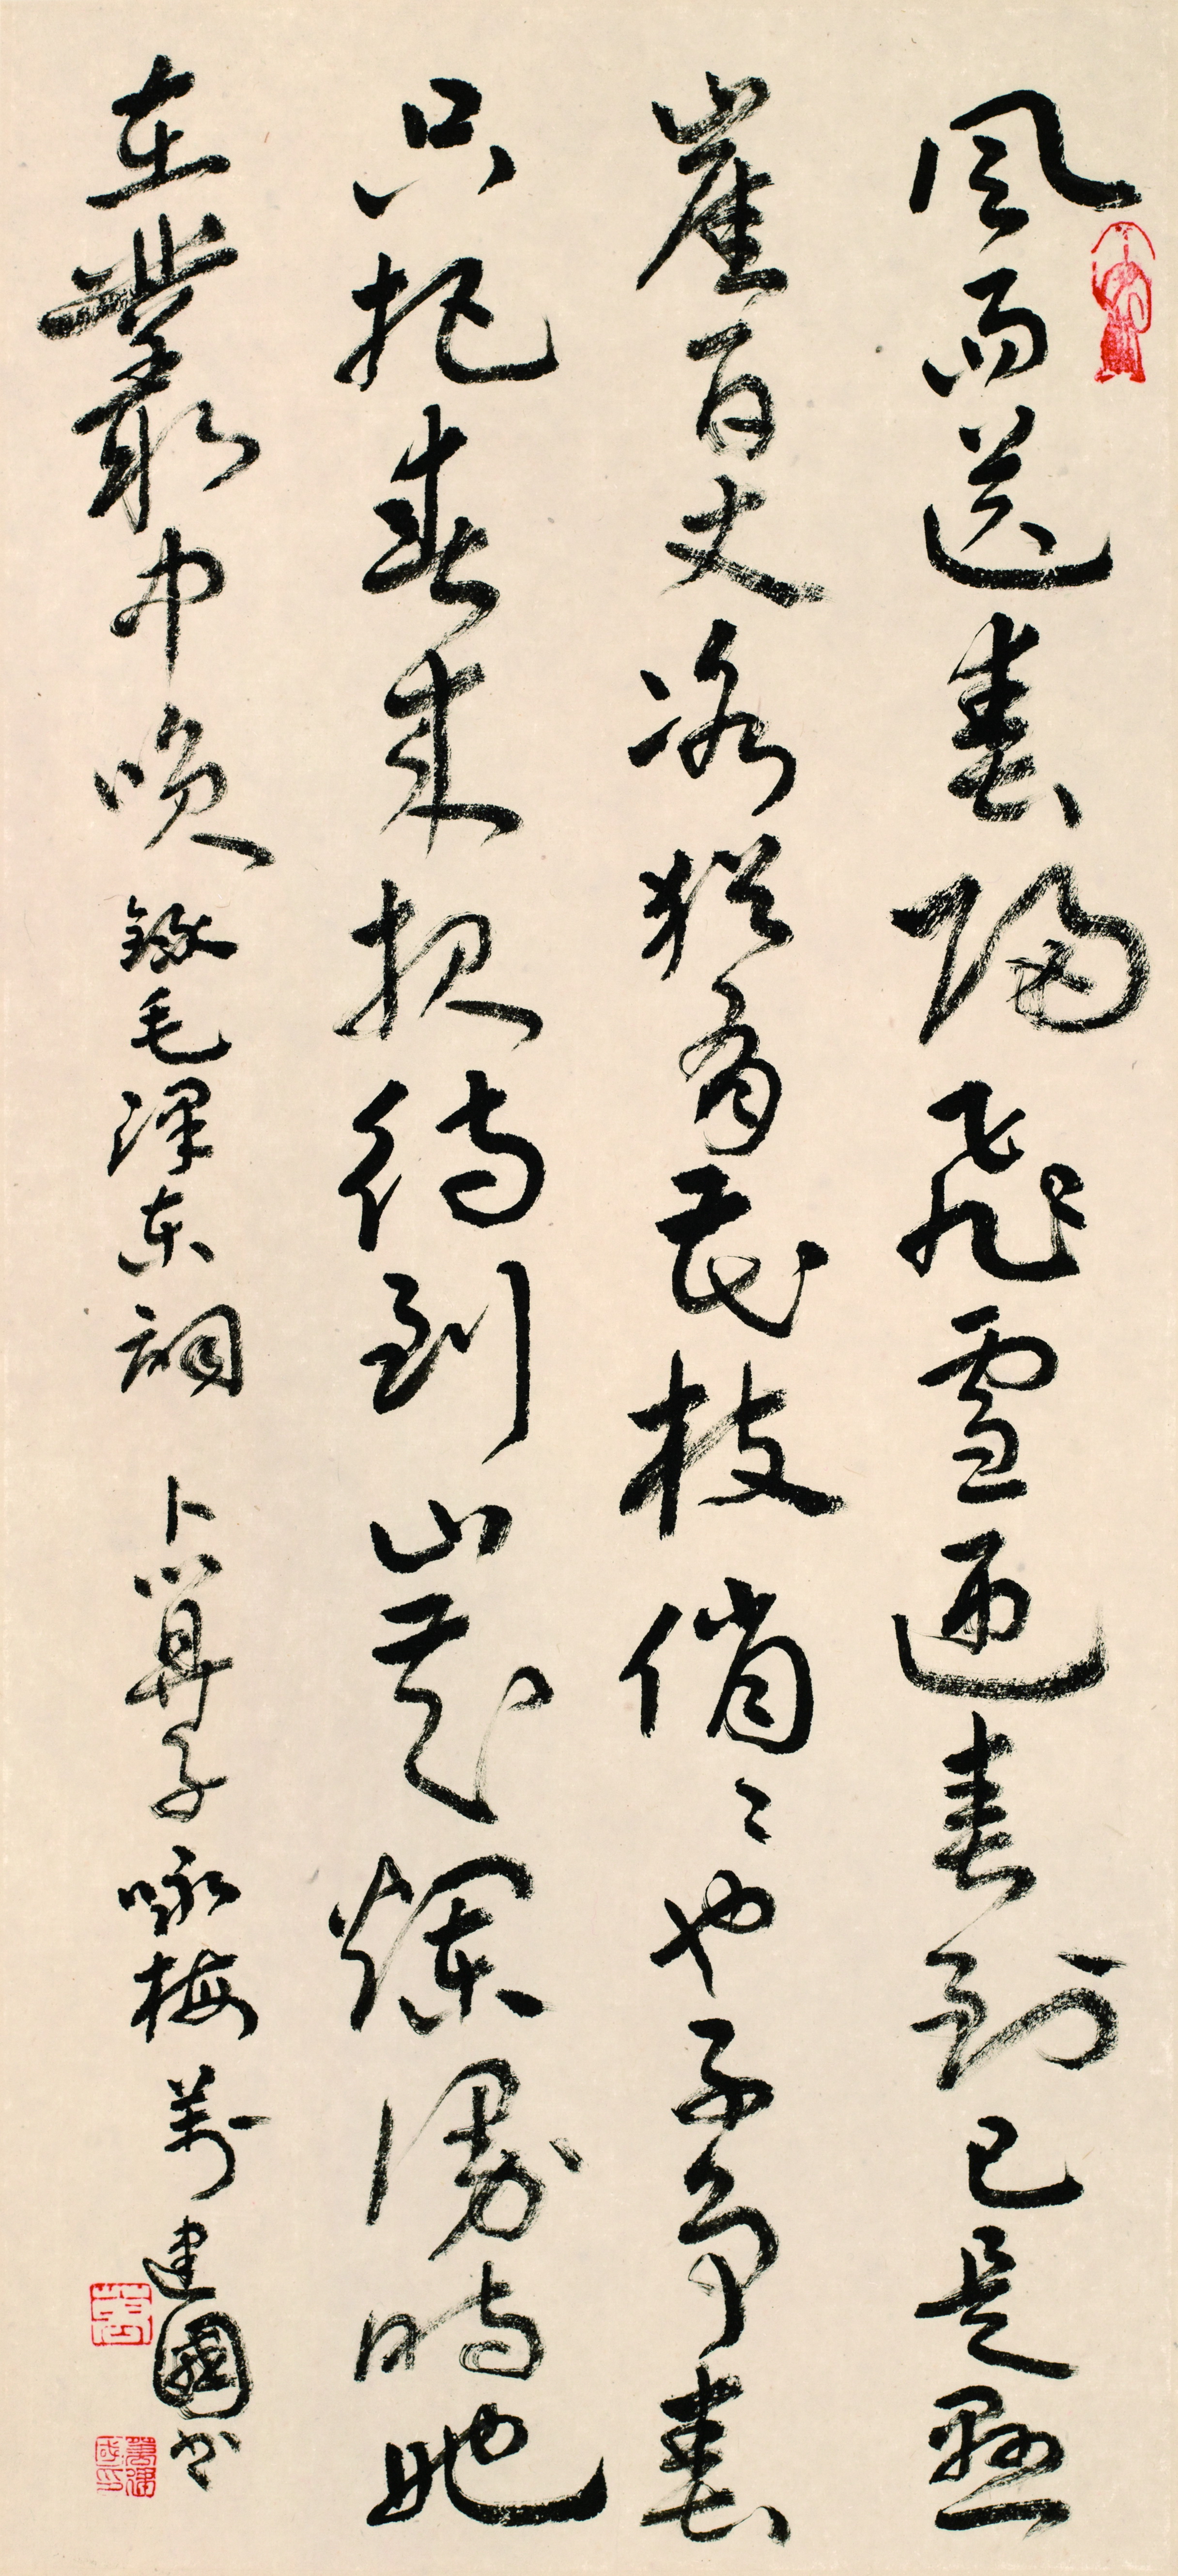 風雨送春歸飛雪迎春到已是懸
崖百丈冰猶有花枝俏々也不爭春
只把春來報待到山花爛漫時她
在叢中咲 錄毛澤東詞 卜算子 咏梅 萬建國書
萬建國印